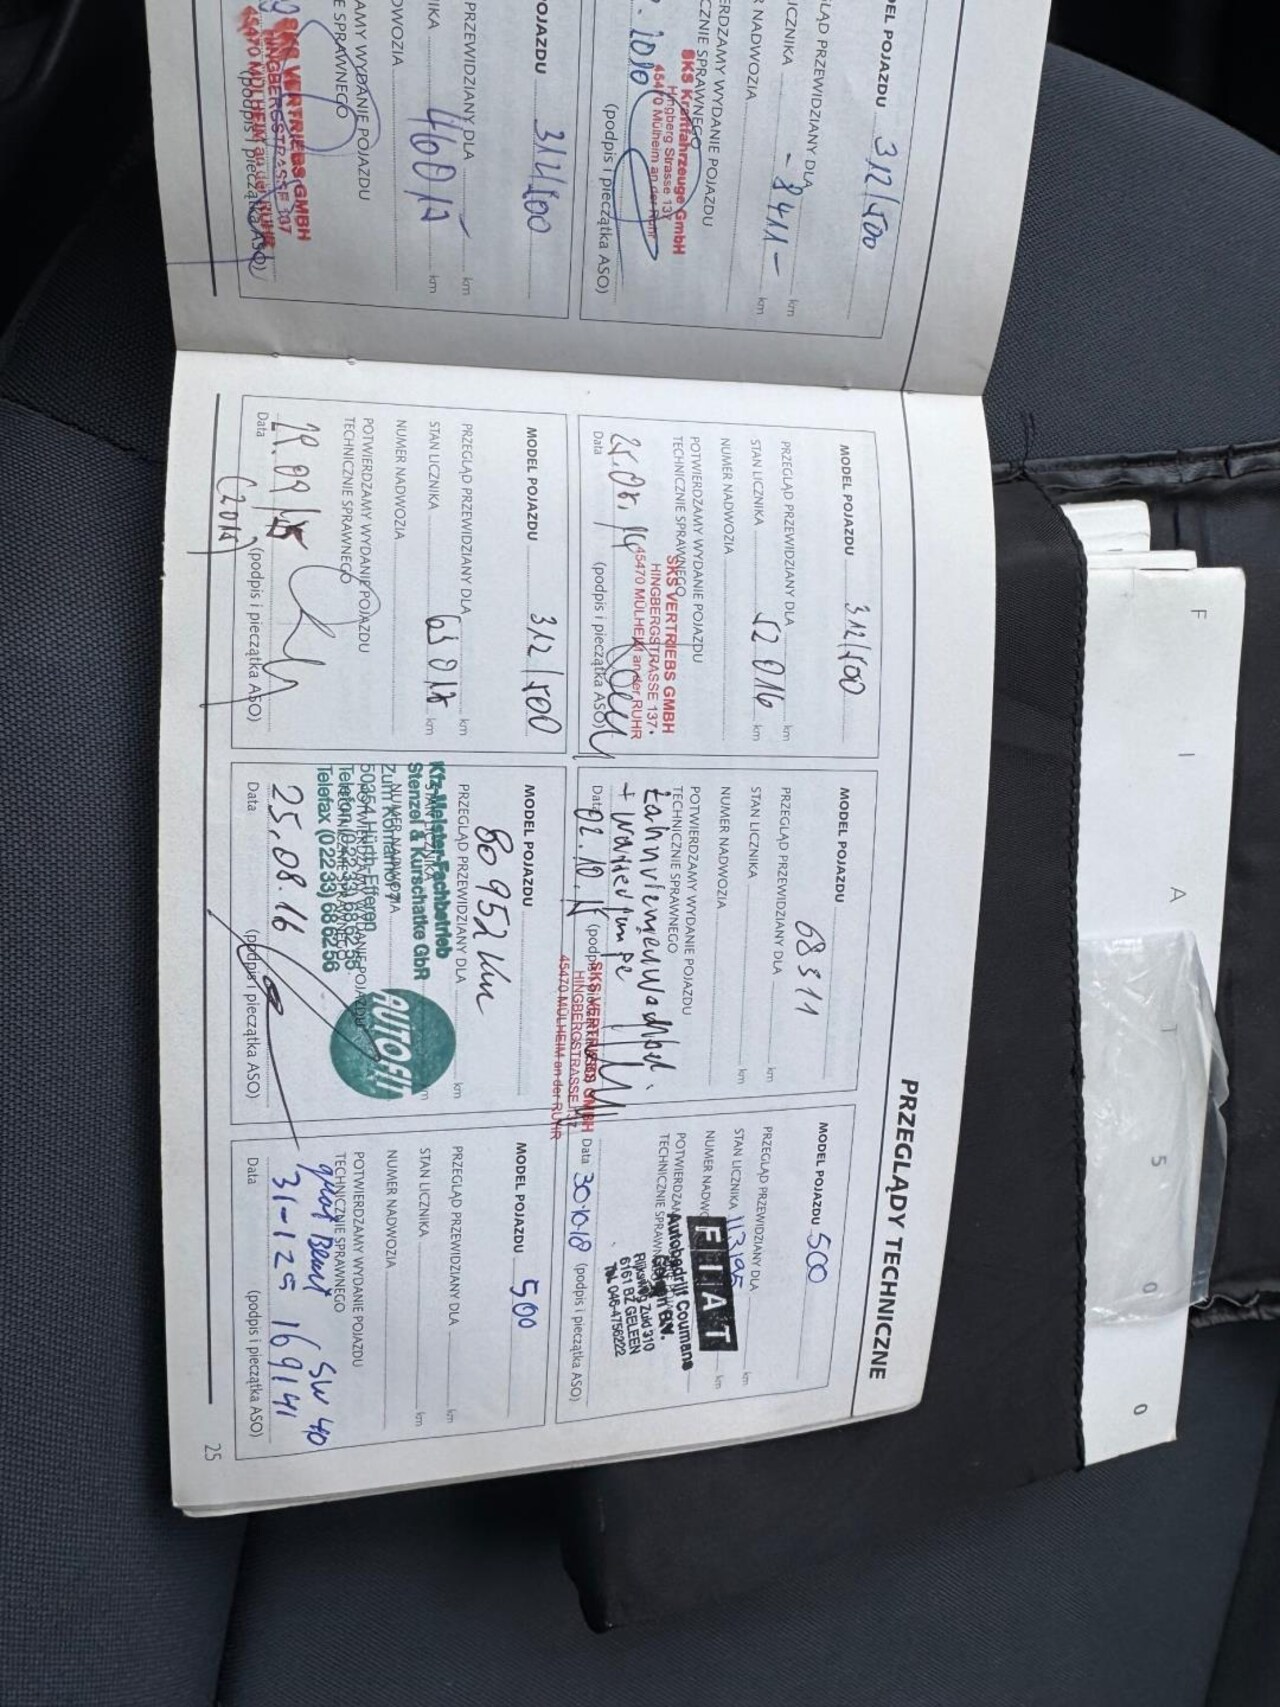 MODEL POJAZDU 312/500
GLĄD PRZEWIDZIANY DLA km
ICZNIKA - 8411 - km
R NADWOZIA
ERDZAMY WYDANIE POJAZDU
CZNIE SPRAWNEGO
SKS Kraftfahrzeuge GmbH
Hingberg Strasse 137
45470 Mülheim an der Ruhr
(podpis i pieczątka ASO)
POJAZDU 312/500
PRZEWIDZIANY DLA km
IKA km
DWOZIA
AMY WYDANIE POJAZDU
E SPRAWNEGO
SKS VERTRIEBS GMBH
HINGBERGSTRASSE 137
45470 MÜLHEIM an der RUHR
(podpis i pieczątka ASO)
PRZEGLĄDY TECHNICZNE
MODEL POJAZDU 312/500
PRZEGLĄD PRZEWIDZIANY DLA km
STAN LICZNIKA 52 016 km
NUMER NADWOZIA
POTWIERDZAMY WYDANIE POJAZDU
TECHNICZNIE SPRAWNEGO
SKS VERTRIEBS GMBH
HINGBERGSTRASSE 137
45470 MÜLHEIM an der RUHR
Data (podpis i pieczątka ASO)
MODEL POJAZDU
68 311
PRZEGLĄD PRZEWIDZIANY DLA km
STAN LICZNIKA km
NUMER NADWOZIA
POTWIERDZAMY WYDANIE POJAZDU
TECHNICZNIE SPRAWNEGO
SKS VERTRIEBS GMBH
HINGBERGSTRASSE 137
45470 MÜLHEIM an der RUHR
Data
MODEL POJAZDU 500
PRZEGLĄD PRZEWIDZIANY DLA km
STAN LICZNIKA 113195 km
FIAT
Autobedrijf Coumans
Geleen B.V.
Rijksweg Zuid 310
6161 BZ GELEEN
Tel. 046-4756222
Data 30-10-18 (podpis i pieczątka ASO)
MODEL POJAZDU 312/500
PRZEGLĄD PRZEWIDZIANY DLA km
STAN LICZNIKA km
NUMER NADWOZIA
POTWIERDZAMY WYDANIE POJAZDU
TECHNICZNIE SPRAWNEGO
Data (podpis i pieczątka ASO)
MODEL POJAZDU
80 952 km
PRZEGLĄD PRZEWIDZIANY DLA km
Kfz-Meister-Fachbetrieb
Stenzel & Kurschatke GbR
50354 Hürth-Efferen
Telefax (0 22 33) 68 62 56
AUTOFIT
Data 25.08.16 (podpis i pieczątka ASO)
MODEL POJAZDU 500
PRZEGLĄD PRZEWIDZIANY DLA km
STAN LICZNIKA km
NUMER NADWOZIA
POTWIERDZAMY WYDANIE POJAZDU
TECHNICZNIE SPRAWNEGO
groot Beurt 5W40
Data 169141 (podpis i pieczątka ASO)
25
FIAT 500